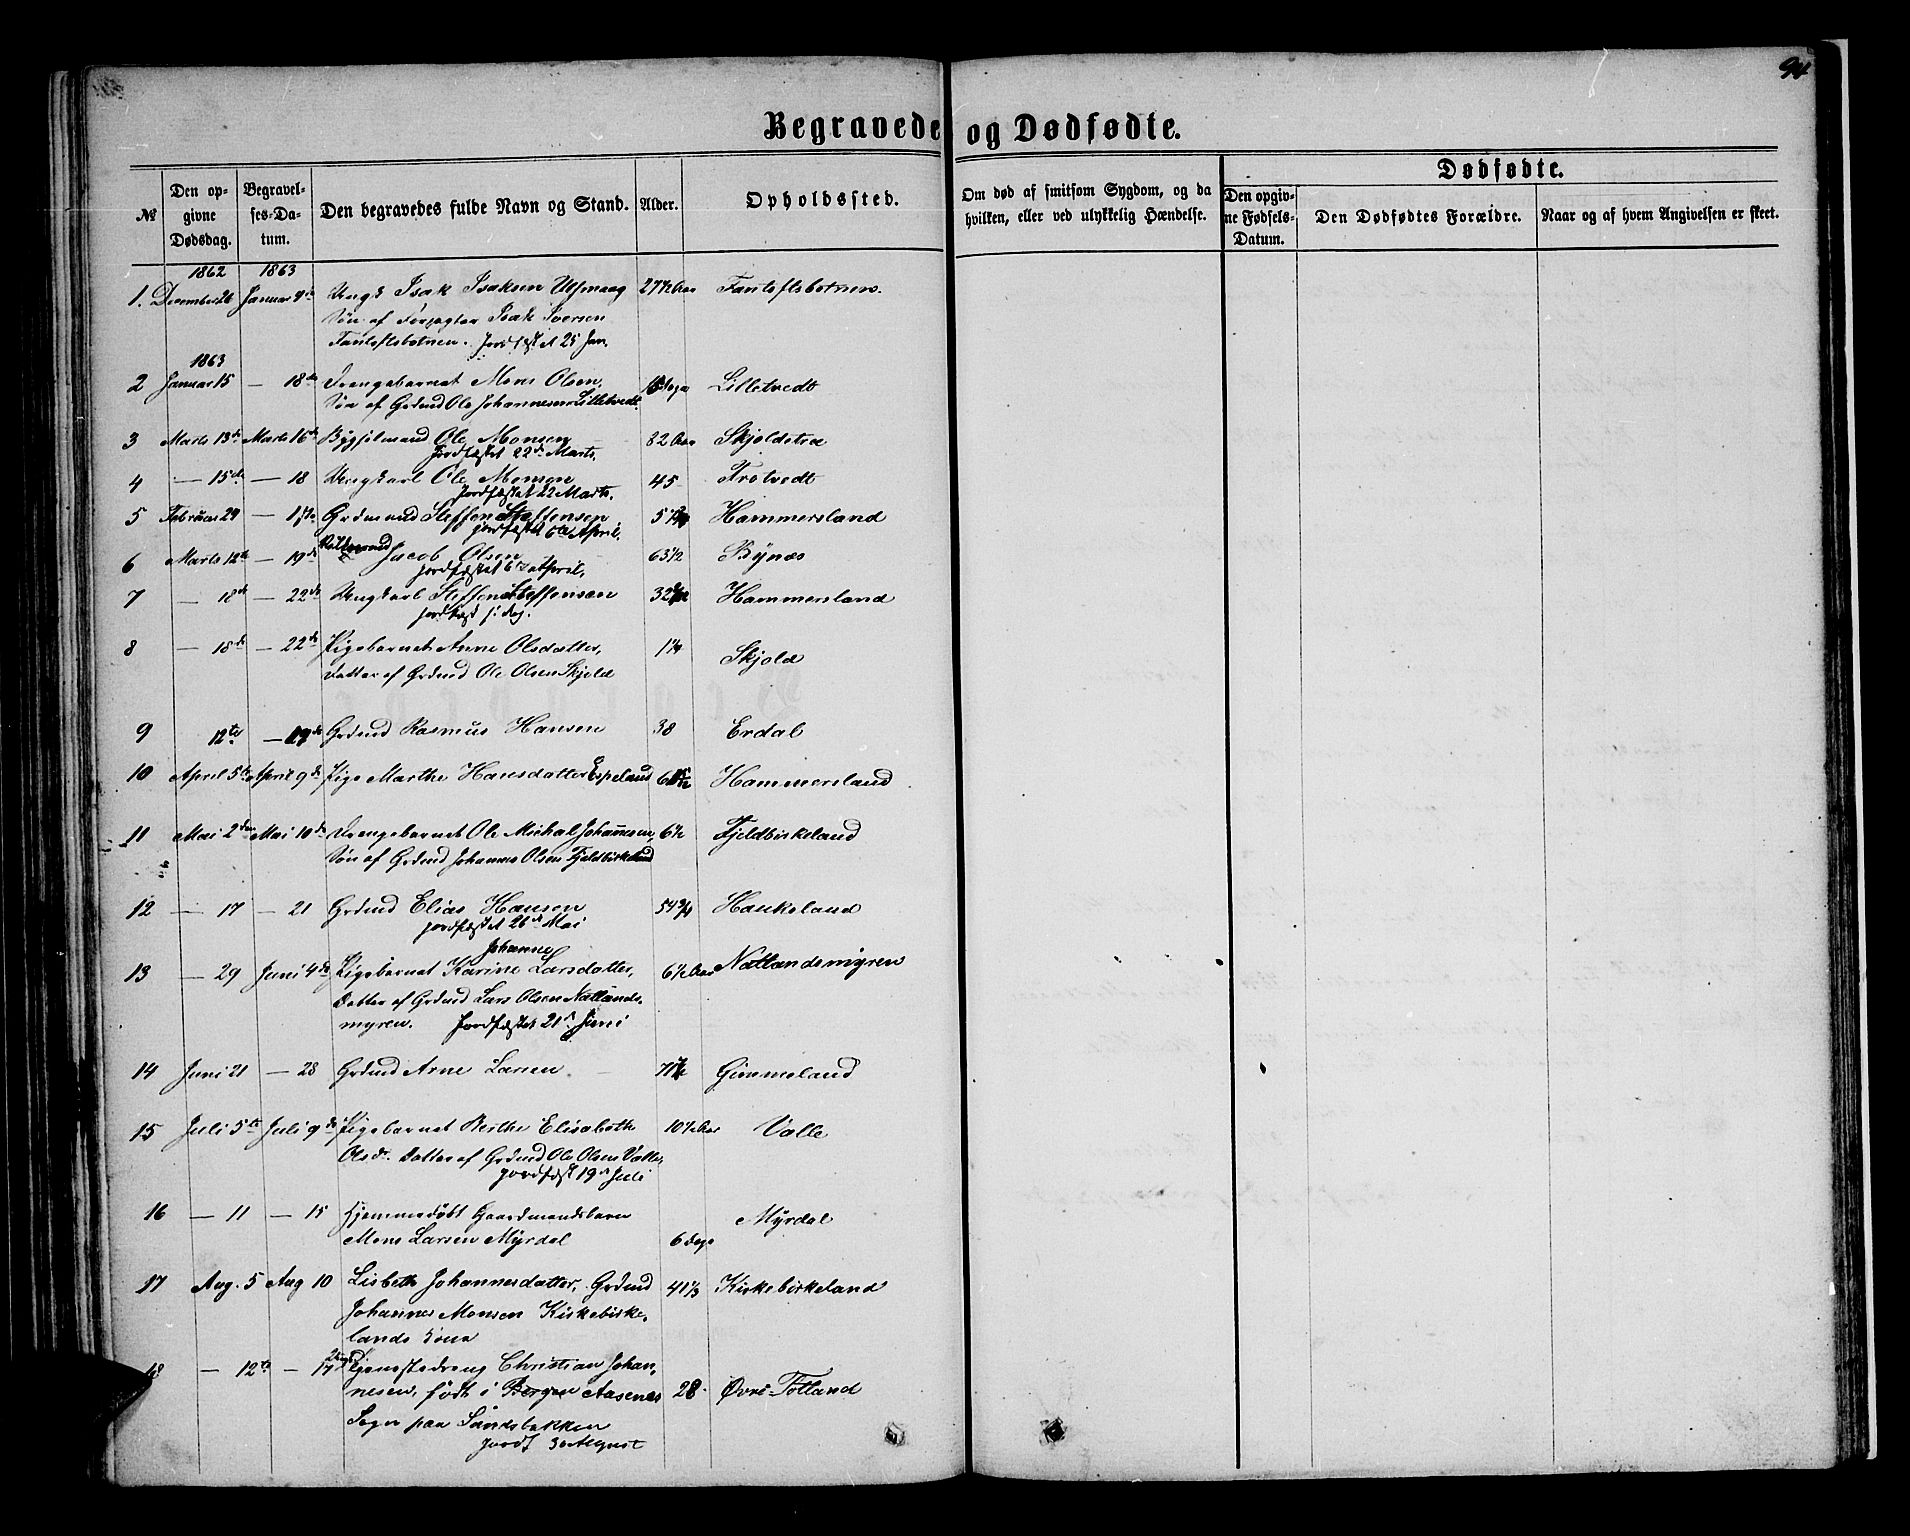 94
Begravede og Dødfødte.
№
Den opgivne Dødsdag.
Begravelses-Datum.
Den begravedes fulde Navn og Stand.
Alder.
Opholdssted.
Om død af smitsom Sygdom, og da hvilken, eller ved ulykkelig Hændelse.
Dødfødte.
Den opgivne Fødsels-Datum.
Den Dødfødtes Forældre.
Naar og af hvem Angivelsen er skeet.
1862 1863
1. December 26 Januar 9de Ungk Isak Isaksen Ulsmaag 27½ Aar Fantoftsbotnen.
Søn af Forpagter Isak Iversen
Fantoftsbotnen. Jordfæstet 25 Jan.
1863
2 Januar 15 — 18de Drengebarnet Mons Olsen, Dage Lilletvedt
Søn af Grdmd Ole Johannesen Lilletvedt.
3 Marts 13de Marts 16de Bygselmand Ole Monsen 82 Aar Skjoldstræ
Jordfæstet 22de Marts.
4 — 15de — 18 Ungkarl Ole Monsen 45 Trotvedt
Jordfæstet 22 Marts.
5 Februar 24 — Grdmand Steffen Steffensen Hammersland
jordfæstet 6te April.
6 Marts 12te — 19de Jacob Olsen 63½ Bynæs
jordfæstet 6te April.
7 — 18de — 22de Ungkarl Steffen Steffensen 32 Hammersland
jordfæst s: dag.
8 — 18de — 22de Pigebarnet Anne Olsdatter, 1¼ Skjold
Datter af Grdmd Ole Olsen Skjold
9 12te — 19de Grdmd Rasmus Hansen 38 Erdal
10 April 5te April 9de Pige Marthe Hansdatter Espeland Hammersland
11 Mai 2den Mai 10de Drengebarnet Ole Michal Johannesen, 6½ Fjeldbirkeland
Søn af Grdmd Johannes Olsen Fjeldbirkeland
12 — 17 — 21 Grdmd Elias Hansen 54¾ Haukeland
jordfæstet 26de Mai
Johanne
13 — 29 Juni 4de Pigebarnet Karine Larsdatter, 6½ Aar Natlandsmyren
Datter af Grdmd Lars Olsen Natlands-
myren. Jordfæstet 21de Juni
14 Juni 21 — 28 Grdmd Arne Larsen Gimmeland
15 Juli 5te Juli 9de Pigebarnet Berthe Elisabeth 10½ Aar Valle
Olsdr. Datter af Grdmd Ole Olsen Valle,
jordfæst 19de Juli
16 — 11 — 15 Hjemmedøbt Gaardmandsbarn Myrdal
Mons Larsen Myrdal 6 Dage
17 Aug. 5 Aug 10 Lisbeth Johannesdatter, Grdmd 41⅓ Kirkebirkeland
Johannes Monsen Kirkebirke-
lands Kone
18 — 12te — 17 Tjenestedreng Christian Johan-
nesen, født i Bergen Aasenes 28 Øvre-Totland
Søgn paa Sandsbakken
jordf 30 August